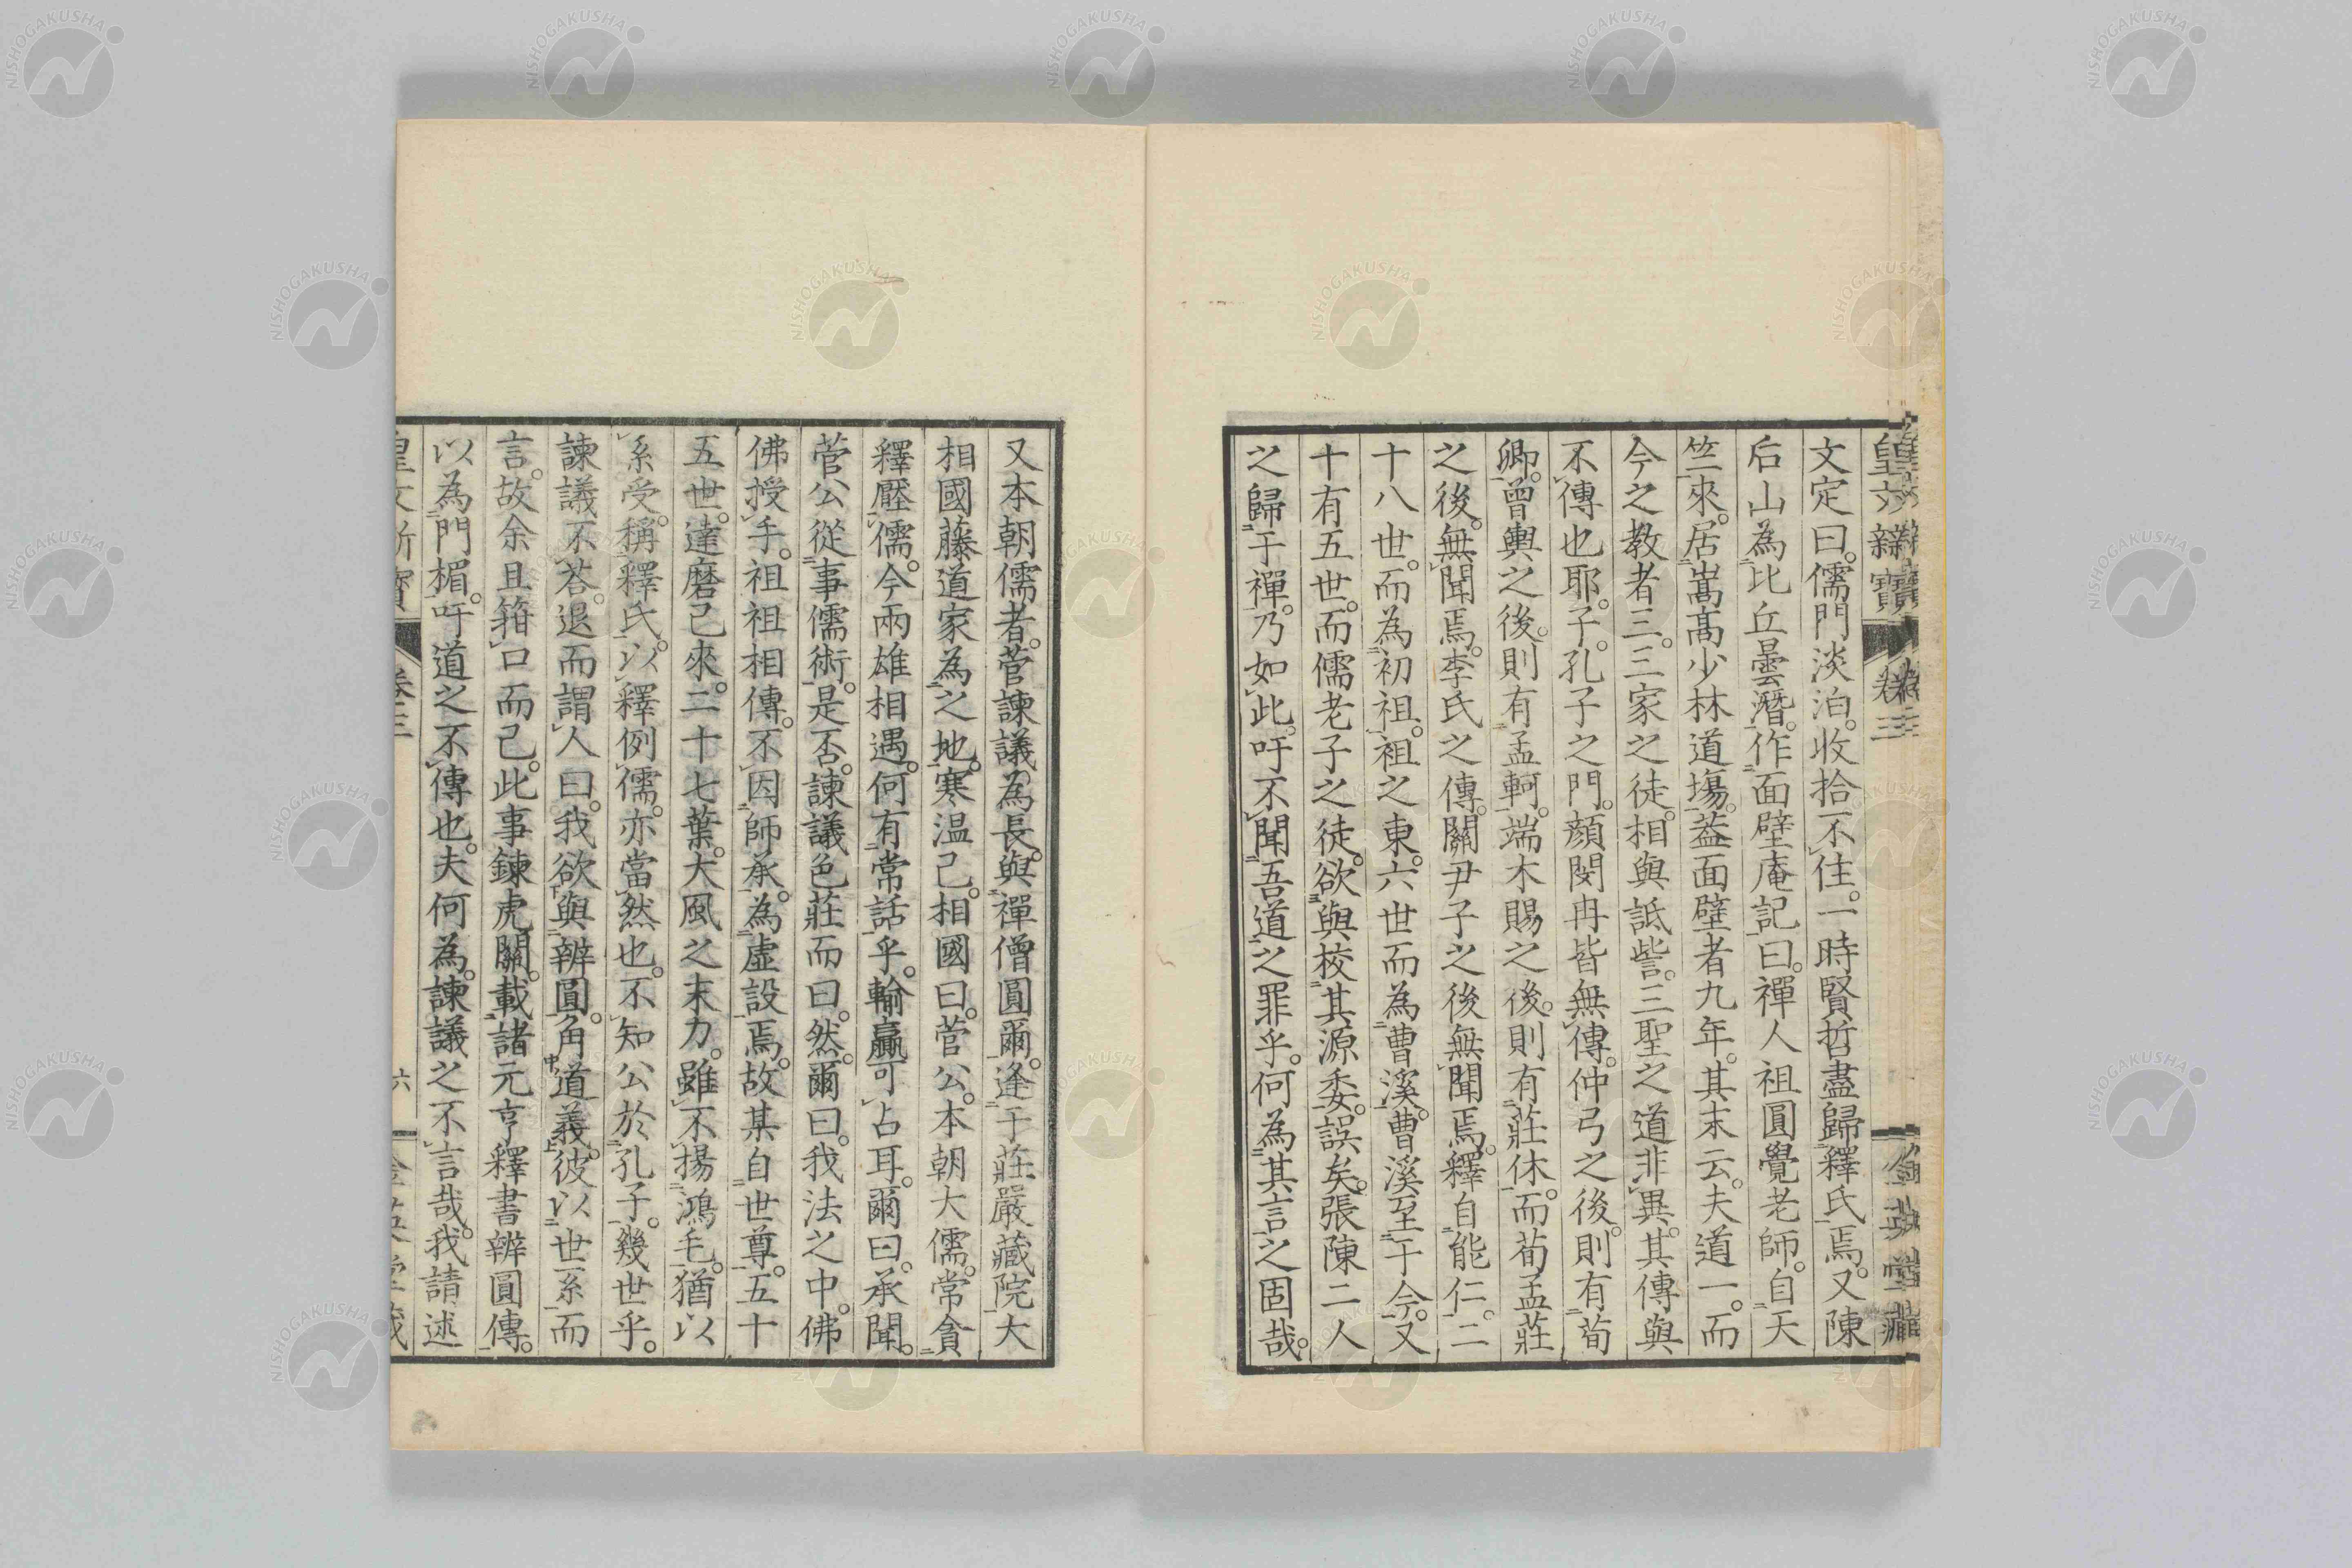 文定曰。儒門淡泊。收拾不住。一時賢哲盡歸釋氏焉。又陳
后山為比丘曇潛。作面壁庵記曰。禪人祖圓覺老師。自天
竺來。居嵩高少林道場。葢面壁者九年。其末云。夫道一。而
今之教者三。三家之徒。相與詆訾。三聖之道非異。其傳與
不傳也耶。子。孔子之門。顏閔冉皆無傳。仲弓之後。則有荀
卿。曾輿之後。則有孟軻。端木賜之後。則有莊休。而荀孟莊
之後。無聞焉。李氏之傳。關尹子之後無聞焉。釋自能仁。二
十八世。而為初祖。祖之東。六世而為曹溪。曹溪至于今。又
十有五世。而儒老子之徒。欲與校其源委。誤矣。張陳二人
之歸于禪。乃如此。吁不聞吾道之罪乎。何為其言之固哉。
又本朝儒者。菅諫議為長。與禪僧圓爾。逢于莊嚴藏院。大
相國藤道家為之地。寒温已。相國曰。菅公。本朝大儒。常貪
釋壓儒。今兩雄相遇。何有常話乎。輸贏可占耳。爾曰。承聞。
菅公從事儒術。是否。諫議色莊而曰。然。爾曰。我法之中。佛
佛授手。祖祖相傳。不因師承。為虛設焉。故某自世尊。五十
五世。達磨已來。二十七葉。大風之末力。雖不揚鴻毛。猶以
系受。稱釋氏。以釋例儒。亦當然也。不知公於孔子。幾世乎。
諫議不荅。退而謂人曰。我欲與辨圓。角道義。彼以世系而
言。故余且箝口而已。此事鍊虎關。載諸元亨釋書辨圓傳。
以為門楣。吁道之不傳也。夫何為。諫議之不言哉。我請述
皇文斷寶
卷三
六